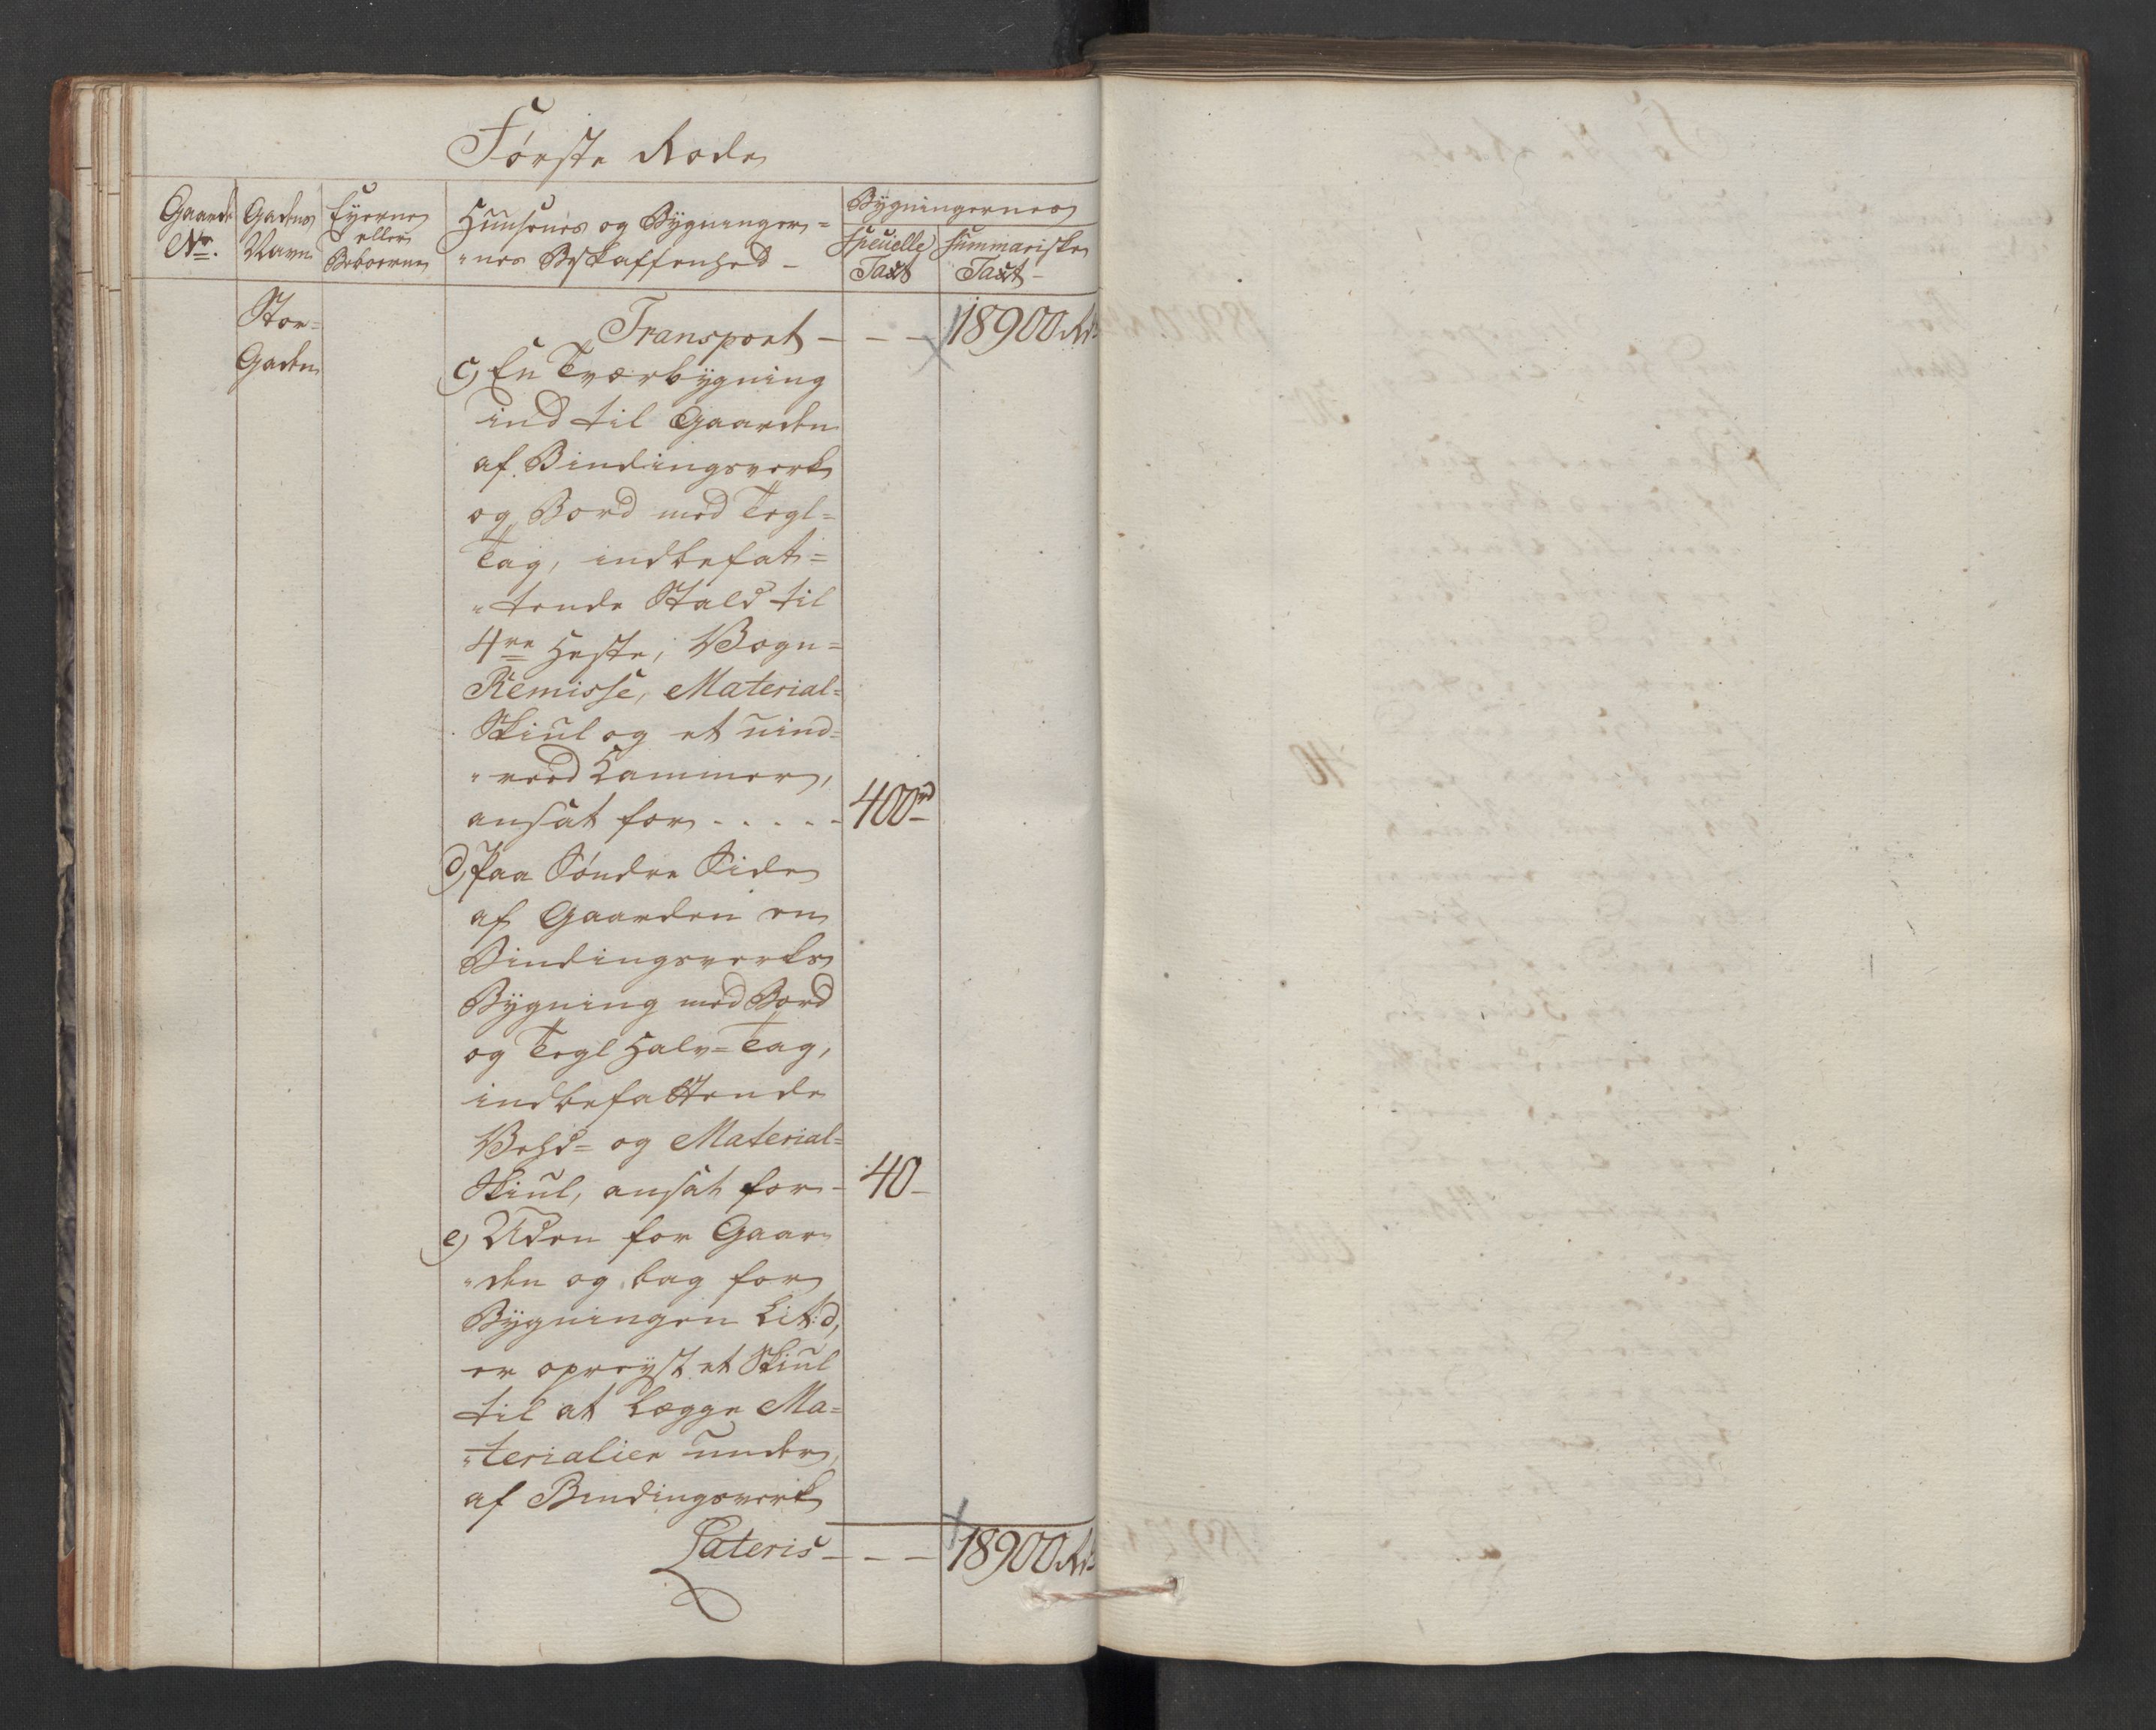 Første Rode
Gaarde No. Gadens Navn Eyerne eller Beboerne Huusenes og Bygninger= Bygningernes
"nes Beskaffenhed - Speuelle Taxt Summariske Taxt-
Stor= Transport - - - 18900 Rd
Gaden c, En Tværbygning
ind til Gaarden
af Bindingsverk
og Bord med Tegl=
Tag, indbefat=
"tende Stald til
4re Heste, Vogn=
Remisse, Material=
Skiul og et uind=
"reed Kammer,
ansat for - - - - - 400rd
d, Paa Søndre Side
af Gaarden en
Bindingsverks
Bygning med Bord
og Tegl Halv=Tag,
indbefattende
Vehd= og Material=
Skiul, ansat for - 40-
e, Uden for Gaar=
"den og bag for
Bygningen Lit: d,
er opreyst et Skiul
til at Lægge Ma=
"terialier under,
af Bindingsverk
Lateris - - - 18900 Rd